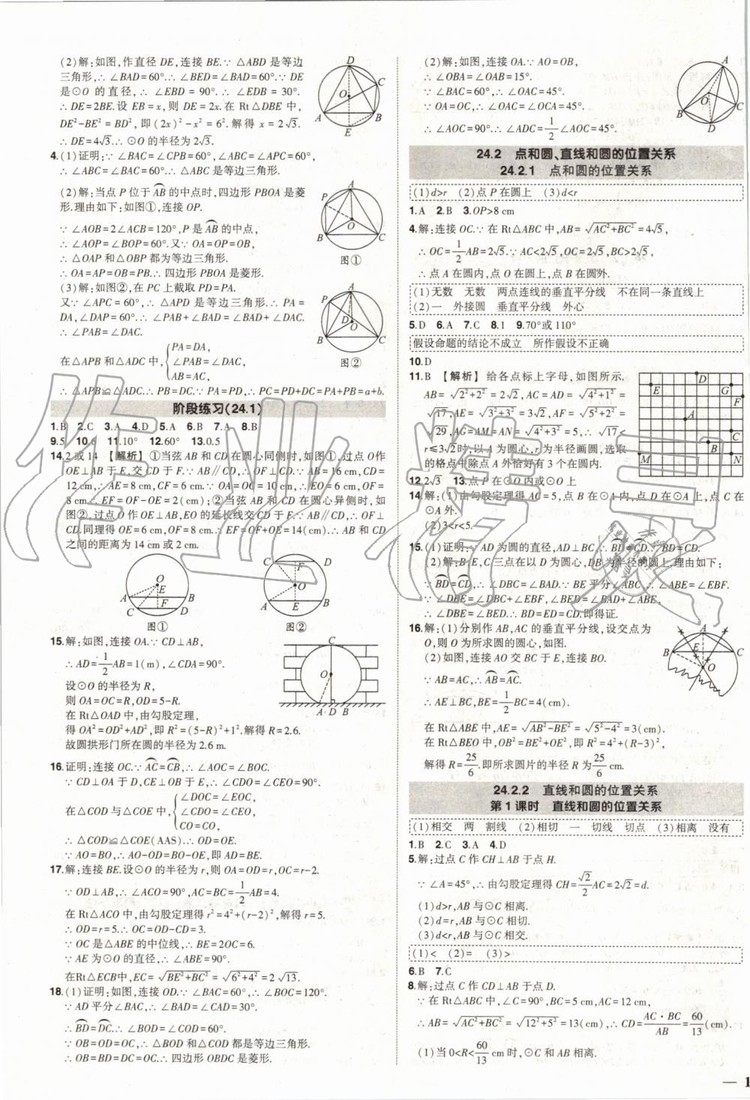 (2)解:如图,作直径 DE,连接 BE.∵ △ABD 是等边
三角形,∴ ∠BAD=60°.∴ ∠BED=∠BAD=60°.∵ DE
是⊙O 的直径,∴ ∠EBD = 90°.∴ ∠EDB = 30°.
∴ DE=2BE.设 EB=x,则 DE=2x.在 Rt△DBE 中,
DE²-BE²=BD²,即(2x)²-x²=6².解得 x=2√3.
∴ DE=4√3.∴ ⊙O 的半径为 2√3.
4.(1)证明:∵ ∠BAC=∠CPB=60°,∠ABC=∠APC=60°,
∴ ∠ABC=∠BAC=60°.∴ △ABC 是等边三角形.
(2)解:如图,当点 P 位于 AB 的中点时,四边形 PBOA 是菱
形.理由如下:如图①,连接 OP.
∵ ∠AOB=2∠ACB=120°,P 是 AB 的中点,
∴ ∠AOP=∠BOP=60°.又∵ OA=OP=OB,
∴ △OAP 和△OBP 都为等边三角形.
∴ OA=AP=OB=PB.∴ 四边形 PBOA 是菱形.
(3)解:如图②,在 PC 上截取 PD=PA.
又∵ ∠APC=60°,∴ △APD 是等边三角形.∴ PA=
DA,∠DAP=60°.∴ ∠PAB+∠BAD=∠BAD+∠DAC.
∴ ∠PAB=∠DAC.
在△APB 和△ADC 中,{PA=DA,
∠PAB=∠DAC,
AB=AC,
∴ △APB≌△ADC.∴ PB=DC.∵ PA=PD,∴ PC=PD+DC=PA+PB=a+b.
图①
图②
阶段练习(24.1)
1.B 2.C 3.A 4.D 5.A 6.B 7.A 8.B
9.5 10.4 11.10° 12.60° 13.0.5
14.2 或 14 【解析】①当弦 AB 和 CD 在圆心同侧时,如图①,过点 O 作
OE⊥AB 于 E,交 CD 于 F.∵ AB∥CD,∴ OF⊥CD.∵ AB=16 cm,CD=
12 cm,∴ AE=8 cm,CF=6 cm.∵ OA=OC=10 cm,∴ EO=6 cm,OF=
8 cm.∴ EF=OF-OE=2(cm);②当弦 AB 和 CD 在圆心异侧时,如
图②,过点 O 作 OE⊥AB,EO 的延长线交 CD 于 F.∵ AB∥CD,∴ OF⊥
CD.同理得 OE=6 cm,OF=8 cm.∴ EF=OF+OE=14(cm).∴ AB 和 CD
之间的距离为 14 cm 或 2 cm.
图①
图②
15.解:如图,连接 OA.∵ CD⊥AB,
∴ AD=1/2AB=1(m),∠CDA=90°.
设⊙O 的半径为 R,
则 OA=OC=R,OD=5-R.
在 Rt△OAD 中,由勾股定理,
得 OA²=OD²+AD²,即 R²=(5-R)²+1².解得 R=2.6.
故圆拱形门所在圆的半径为 2.6 m.
16.证明:连接 OC.∵ AC=CB,∴ ∠AOC=∠BOC.
∵ CD⊥OA 于 D,CE⊥OB 于 E,∴ ∠CDO=∠CEO=90°.
在△COD 与△COE 中,{∠DOC=∠EOC,
∠CDO=∠CEO,
CO=CO,
∴ △COD≌△COE(AAS).∴ OD=OE.
∵ AO=BO,∴ AO-OD=BO-OE,即 AD=BE.
17.解:连接 BE.设⊙O 的半径为 r,则 OA=OD=r,OC=r-2.
∵ OD⊥AB,∴ ∠ACO=90°,AC=BC=1/2AB=4.
在 Rt△ACO 中,由勾股定理得 r²=4²+(r-2)²,解得 r=5.
∴ OD=r=5.∴ OC=OD-CD=3.
∵ OC 是△ABE 的中位线,∴ BE=2OC=6.
∵ AE 为⊙O 的直径,∴ ∠ABE=90°.
在Rt△ECB中,EC=√(BE²+BC²)=√(6²+4²)=2√13.
18.(1)证明:如图,连接 OD.∵ ∠BAC=60°,∴ ∠BOC=120°.
∵ AD 平分∠BAC,∴ ∠BAD=∠CAD=30°.
∴ BD=DC.∴ ∠BOD=∠COD=60°.
∵ OB=OD=OC,∴ △BOD 和△COD 都是等边三角形.
∴ OB=BD=DC=OC.∴ 四边形 OBDC 是菱形.
(2)解:如图,连接 OA.∵ AO=OB,
∴ ∠OBA=∠OAB=15°.
∵ ∠BAC=60°,∴ ∠OAC=45°.
∵ OA=OC,∴ ∠OAC=∠OCA=45°.
∴ ∠AOC=90°.∴ ∠ADC=1/2∠AOC=45°.
24.2 点和圆、直线和圆的位置关系
24.2.1 点和圆的位置关系
(1)d>r (2)点 P 在圆上 (3)d<r
1.A 2.B 3.OP>8 cm
4.解:连接 OC.在 Rt△ABC 中,AB=√(AC²+BC²)=4√5,
∴ OC=1/2AB=2√5.∵ AC<2√5,OC=2√5,BC>2√5,
∴ 点 A 在圆内,点 O 在圆上,点 B 在圆外.
(1)无数 无数 两点连线的垂直平分线 不在同一条直线上
(2)一 外接圆 垂直平分线 外心
5.D 6.A 7.C 8.1 9.70°或 110°
假设命题的结论不成立 所作假设不正确
10.D
11.B 【解析】给各点标上字母,如图所示.
AB=√(2²+2²)=2√2,AC=AD=√(4²+1²)=
√17,AE=√(3²+3²)=3√2,AF=√(5²+2²)=
√29,AG=AM=AN=√(4²+3²)=5,∴ √17<
r≤3√2时,以 A 为圆心,r 为半径画圆,选取
的格点中除点 A 外恰好有 3 个在圆内.
12.2√3 13.点 P 在⊙O 内或⊙O 上
14.解:(1)由勾股定理得 AC=5,点 B 在⊙A 内,点 D 在⊙A 上,点 C
在⊙A 外.
(2)3<r<5.
15.(1)证明:∵ AD 为圆的直径,AD⊥BC,∴ BD=CD.∴ BD=CD.
(2)解:B,E,C三点在以 D 为圆心,DB 为半径的圆上.理由如下:
∵ BD=CD,∴ ∠DBC=∠BAD.∵ BE平分∠ABC,∴ ∠ABE=∠EBF.
∴ ∠DBE=∠DBC+∠EBF,∠BED=∠BAD+∠ABE,
∴ ∠DBE=∠BED.∴ BD=ED=CD.即得证.
16.解:(1)分别作 AB,AC 的垂直平分线,设交点为
O,则 O 为所求圆的圆心,如图.
(2)如图,连接 AO 交 BC 于 E,连接 BO.
∵ AB=AC,∴ AB=AC.
∴ AE⊥BC,BE=1/2BC=4(cm).
在 Rt△ABE 中,AE=√(AB²-BE²)=√(5²-4²)=3(cm).
在 Rt△BEO 中,OB²=BE²+OE²,即 R²=4²+(R-3)²,
解得 R=25/6.即所求圆片的半径为25/6 cm.
24.2.2 直线和圆的位置关系
第 1 课时 直线和圆的位置关系
(1)相交 两 割线 (2)相切 一 切线 切点 (3)相离 没有
1.B 2.C 3.A 4.D
5.解:过点 C 作 CH⊥AB 于点 H.
∵ ∠A=45°,∴ 由勾股定理得 CH=√2/2AC=2√2=d.
(1)d>r,AB 与⊙C 相离.
(2)d=r,AB 与⊙C 相切.
(3)d<r,AB 与⊙C 相交.
(1)< (2)= (3)>
6.B 7.C
8.解:过点 C 作 CD⊥AB 于点 D.
∵ 在 Rt△ABC 中,∠C=90°,BC=5 cm,AC=12 cm,
∴ AB=√(AC²+BC²)=√(12²+5²)=13(cm),∴ CD=AC·BC/AB=60/13(cm).
(1)当 0<R<60/13 cm 时,⊙C 和 AB 相离.
— 1
作业精灵